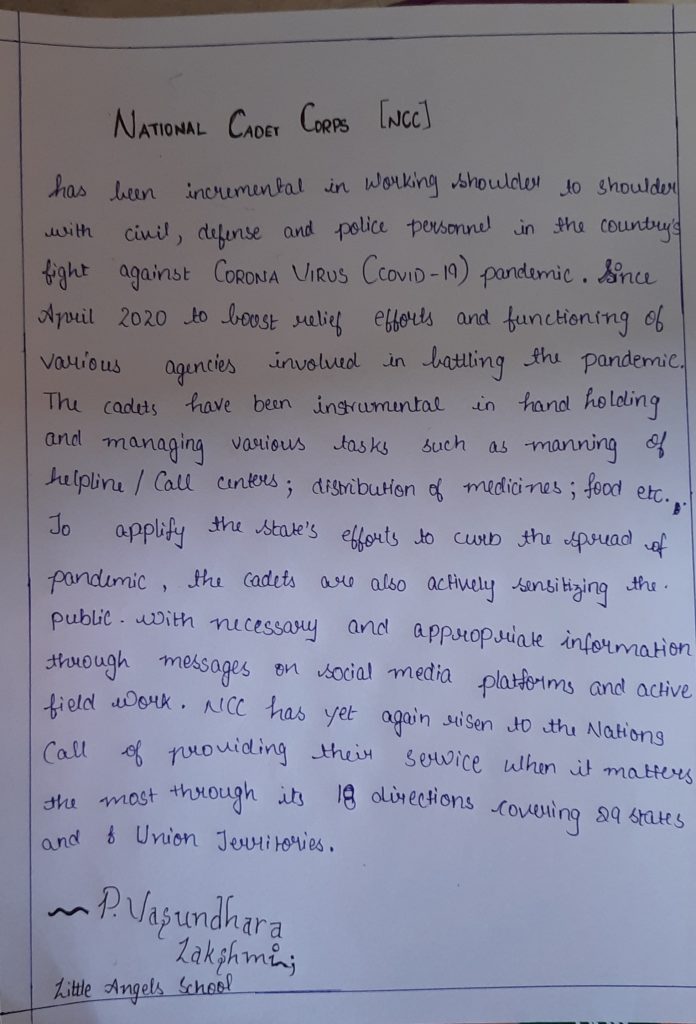 NATIONAL CADET CORPS [NCC]
has been incremental in working shoulder to shoulder
with civil, defense and police personnel in the country's
fight against CORONA VIRUS (COVID-19) pandemic. Since
April 2020 to boost relief efforts and functioning of
various agencies involved in battling the pandemic.
The cadets have been instrumental in hand holding
and managing various tasks such as manning of
helpline / Call centers; distribution of medicines; food etc..
To applify the state's efforts to curb the spread of
pandemic, the cadets are also actively sensitizing the.
public. with necessary and appropriate information
through messages on social media platforms and active
field work. NCC has yet again risen to the Nations
Call of providing their service when it matters
the most through its 18 directions covering 29 states
and 8 Union Territories.
~ P. Vasundhara
Lakshmi;
Little Angels School